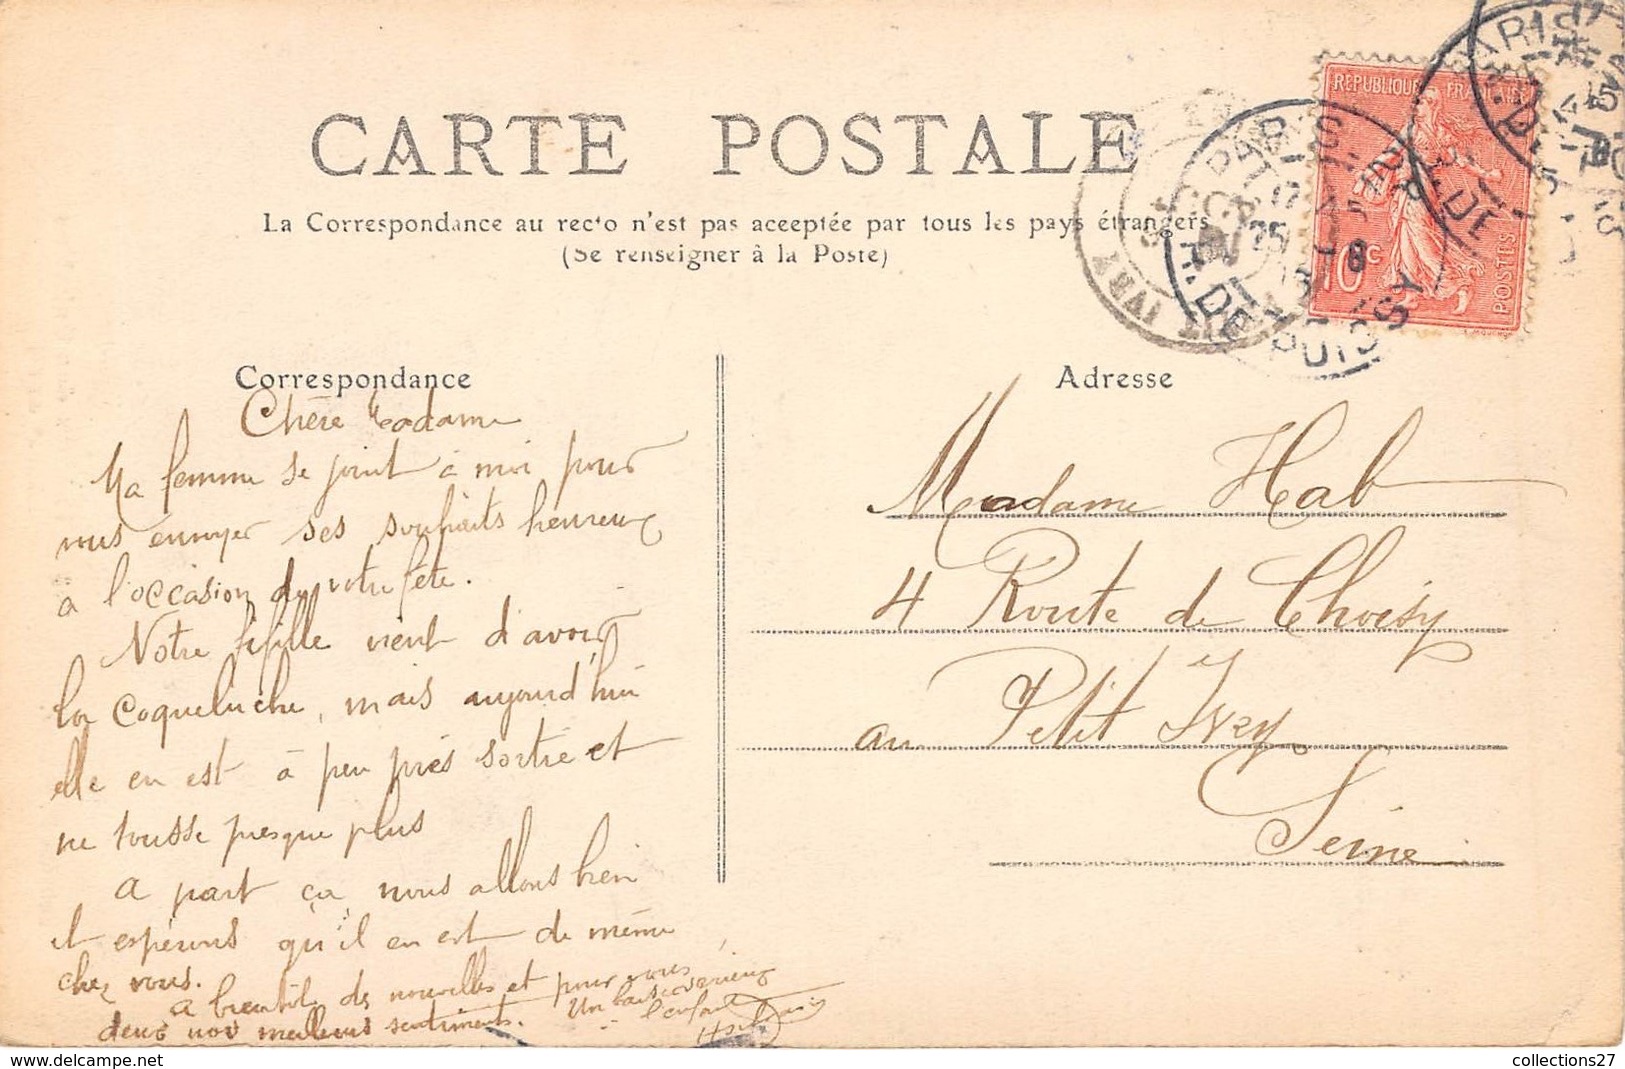 CARTE POSTALE
La Correspondance au recto n'est pas acceptée par tous les pays étrangers
(Se renseigner à la Poste)
REPUBLIQUE FRANÇAISE
10c
POSTES
PARIS
R. DE POISSY
Correspondance
Chère Madame
Ma femme se joint à moi pour
vous envoyer ses souhaits heureux
à l'occasion de votre fête.
Notre fifille vient d'avoir
la Coqueluche, mais aujourd'hui
elle en est à peu près sortie et
ne tousse presque plus
A part ça, nous allons bien
et espérons qu'il en est de même
chez vous.
A bientôt de nouvelles et pour vous
deux nos meilleurs sentiments.
Un baiser
l'enfant
Adresse
Madame Hab
4 Route de Choisy
au Petit Ivry
Seine
collections27